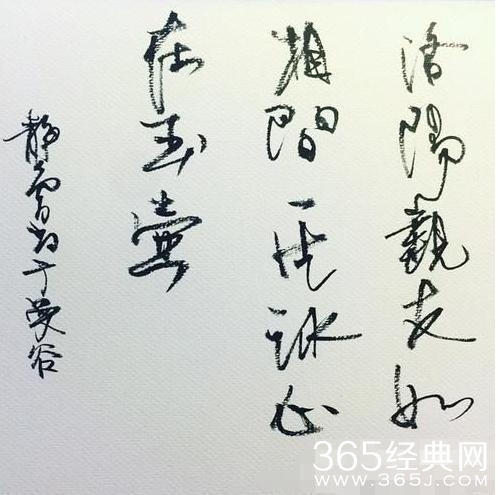 洛陽親友如
相問一片冰心
在玉壺
静蕾书于曼谷
365经典网
WWW.365J.COM